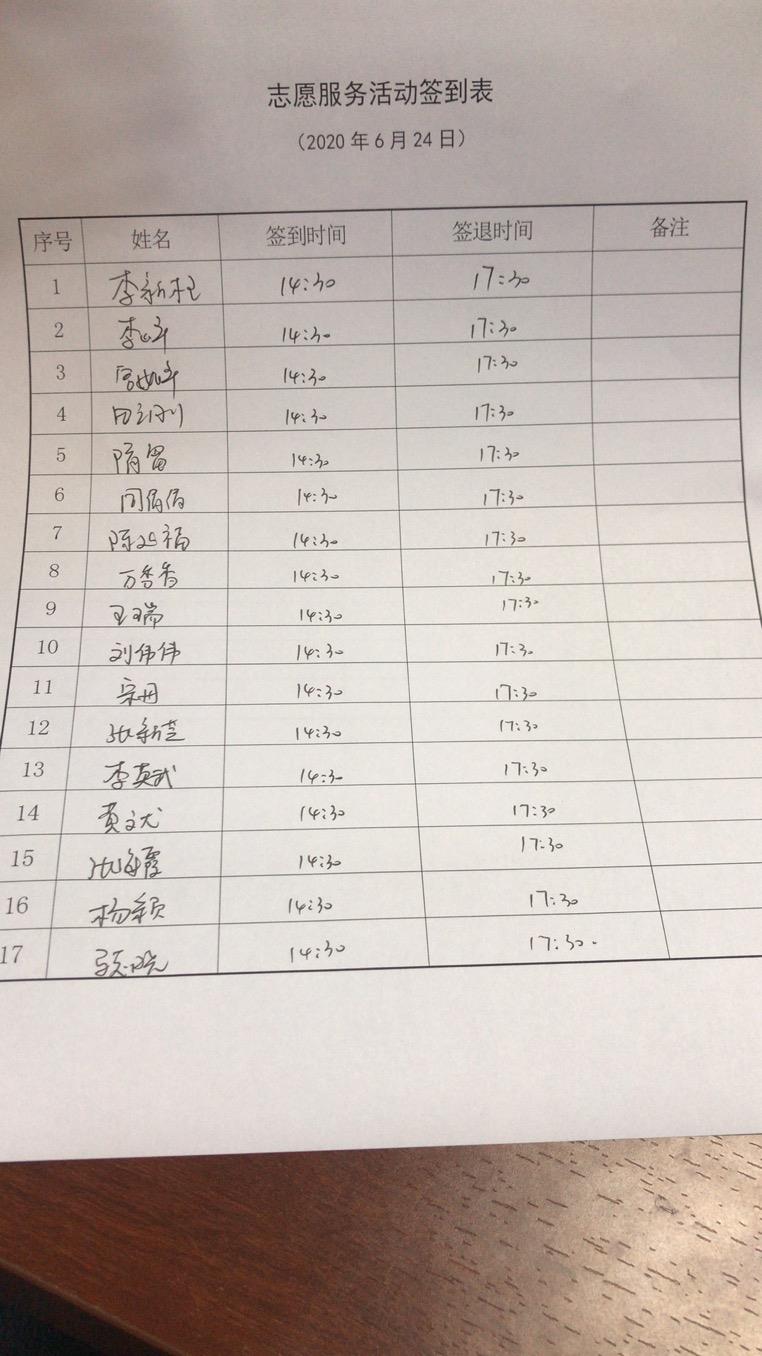 志愿服务活动签到表
（2020 年 6 月 24 日）
序号 姓名 签到时间 签退时间 备注
1 李新 14:30 17:30
2 李 14:30 17:30
3 14:30 17:30
4 田 14:30 17:30
5 隋 14:30 17:30
6 14:30 17:30
7 陈 福 14:30 17:30
8 万香香 14:30 17:30
9 王瑞 14:30 17:30
10 刘伟伟 14:30 17:30
11 宗丹 14:30 17:30
12 张新芝 14:30 17:30
13 李英武 14:30 17:30
14 黄文 14:30 17:30
15 张海霞 14:30 17:30
16 杨颖 14:30 17:30
17 14:30 17:30